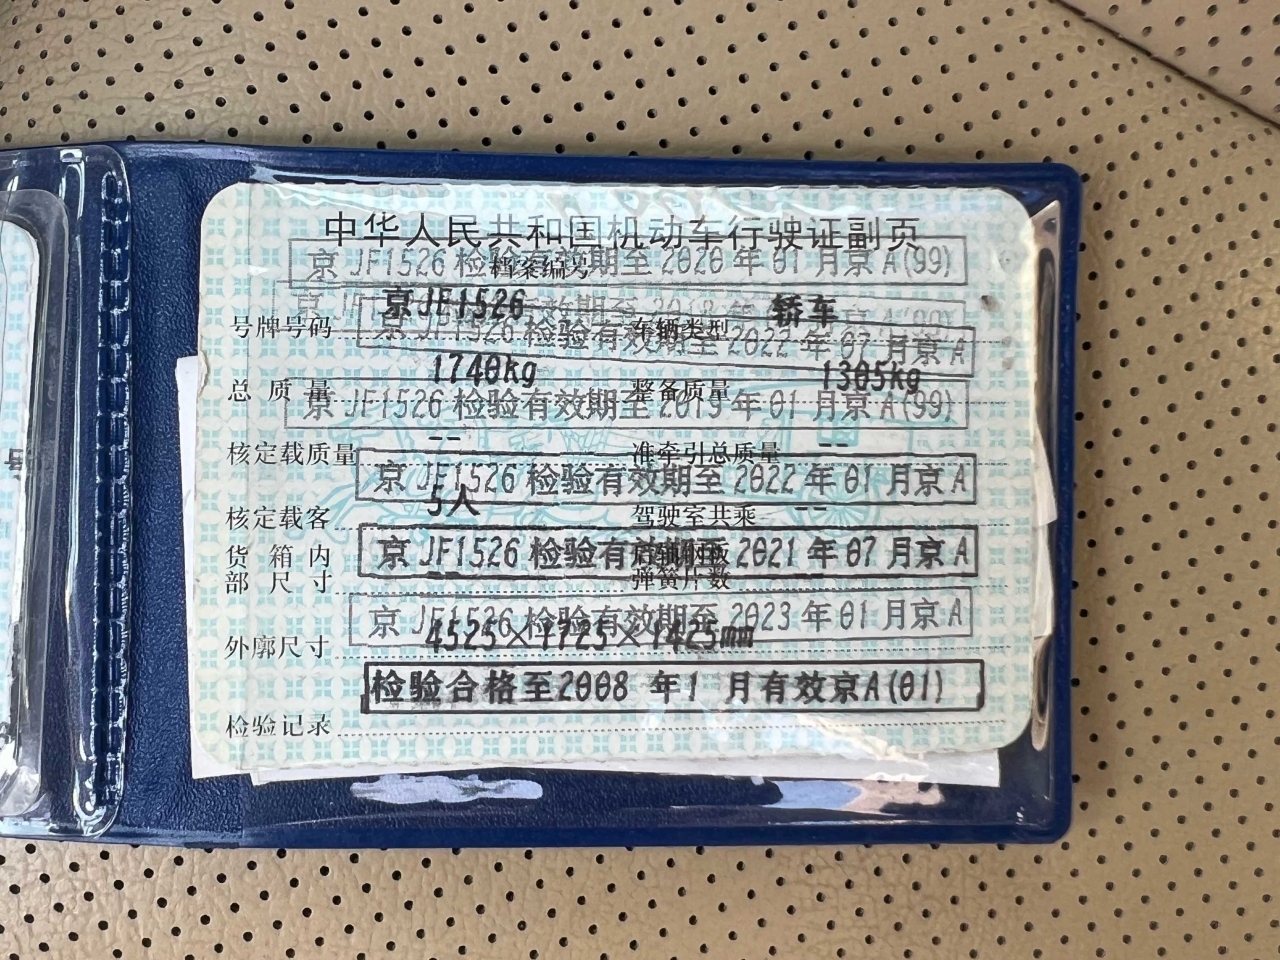 中华人民共和国机动车行驶证副页
京JF1526检验有效期至2020年01月京A(99)
档案编号
京JF1526 轿车
号牌号码 车辆类型
京JF1526检验有效期至2022年07月京A
1740kg 1305kg
总质量 整备质量
京JF1526检验有效期至2019年01月京A(99)
-- --
核定载质量 准牵引总质量
京JF1526检验有效期至2022年01月京A
5人 --
核定载客 驾驶室共乘
京JF1526检验有效期至2021年07月京A
货箱内部尺寸 后轴钢板弹簧片数
京JF1526检验有效期至2023年01月京A
4525×1725×1425mm
外廓尺寸
检验合格至2008年1月有效京A(01)
检验记录